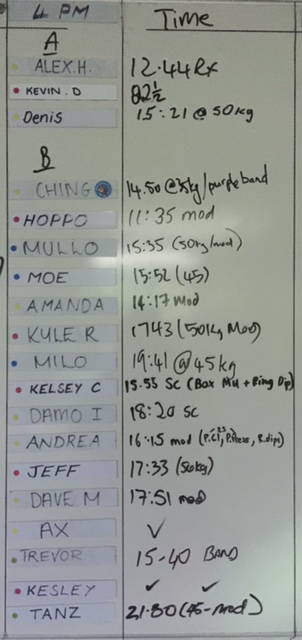 4 PM Time
A
ALEX.H. 12.44 Rx
KEVIN.D 82½
Denis 15:21 @ 50kg
B
CHING 14.50 @35kg/purple band
HOPPO 11:35 mod
MULLO 15:35 (50kg/mod)
MOE 15:52 (45)
AMANDA 14:17 Mod
KYLE R 1743 (50kg Mod)
MILO 19:41 @ 45kg
KELSEY C 15:55 SC (Box MU + Ring Dip)
DAMO I 18:20 SC
ANDREA 16.15 mod (P.Cl, P.Press, R.dips)
JEFF 17:33 (50kg)
DAVE M 17:51 mod
AX ✓
TREVOR 15-40 BAND
KESLEY ✓ ✓
TANZ 21:30 (45-mod)